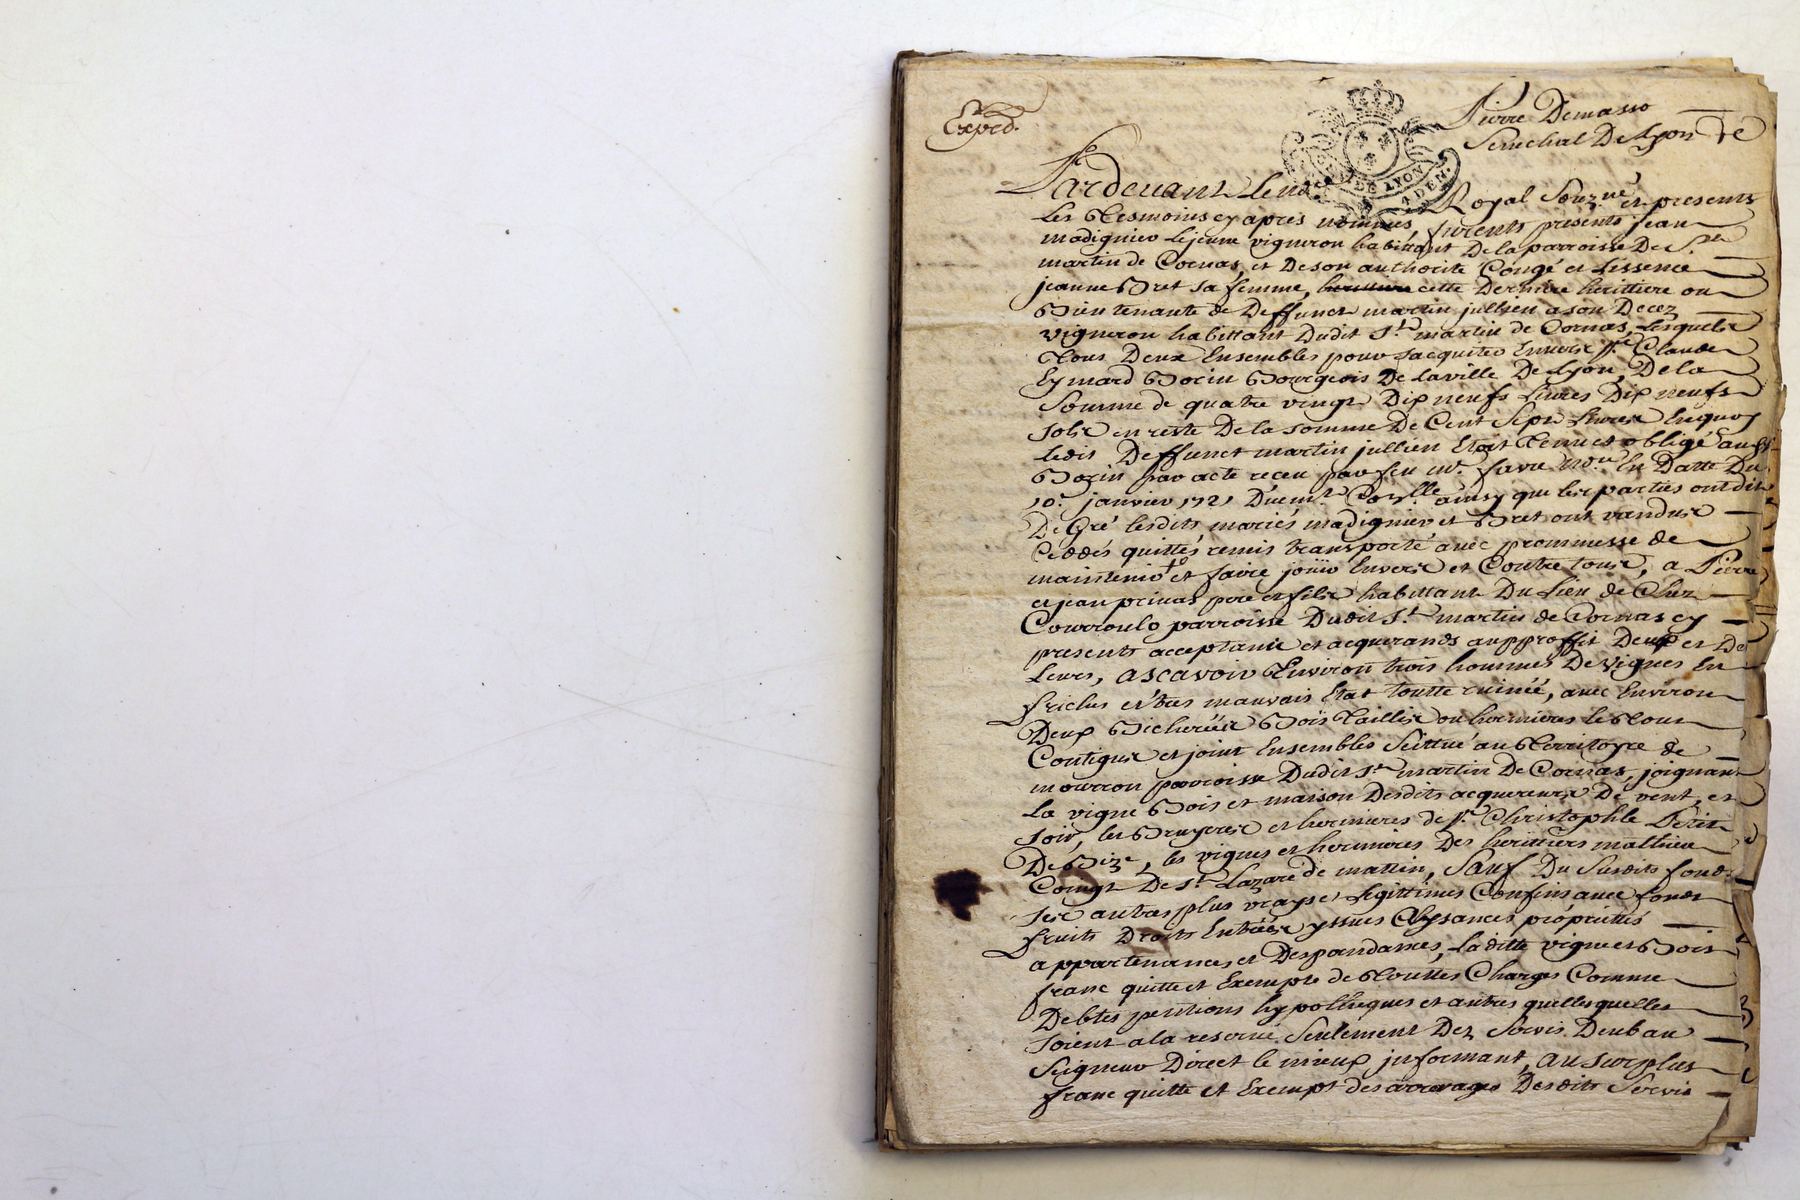 Exped.
Pierre Demasso
Senechal De Lyon
DE LYON
4 DEN.
Pardevant Le no Royal Souzné et presents
Les Tesmoins cy apres nommés, furents presents jean
madignier lejeune vigneron habitant De la parroisse De St
martin de Cornas, et De son authorité Congé et Lissence
jeanne Bret sa femme, cette Derniere herittiere ou
Bien tenante de Deffunct martin jullien a son Decez
vigneron habittant Dudit St martin de Cornas, Lesquels
Tous Deux Ensembles pour sacquiter Envers Sr Claude
Eymard Borin Bourgeois De la ville De Lyon, De la
Somme de quatre vingt Dix neufs Livres Dix neufs
sols en reste De la somme De Cent Sept Livres Enquoy
ledit Deffunct martin jullien Etoit Tenu et obligé audit
Borin par acte receu par feu Me favre En Datte Du
10e janvier 1721 ainsy que les parties ont dit
De Gré lesdits mariés madignier et Bret ont vandus
Ceddés quittés remis transporté avec prommesse de
maintenir et faire joüir Envers et Contre tous, a Pierre
et jean privas pere et fils habittant Du Lieu de Chez
Courroulo parroisse Dudit St martin de Cornas cy
presents acceptants et acquerands aupproffit Deux et De
Leurs, ascavoir Environ trois hommes De vignes En
friches et tres mauvais Etat toutte ruinée, avec Environ
Deux Bicherées Bois Taillis ou hermieres le Tout
Contigus et joint Ensembles Scittué au Territoyre de
mourron parroisse Dudit St martin De Cornas, joignant
La vigne Bois et maison Desdits acquereurs De vent, et
soir, les Bruyeres et hermieres de Sr Christophle Petit
De Bize, les vignes et hermieres Des herittiers mathieu
Coingt De St Lazare de mattin, Sauf Du Susdits fonds
ses autres plus vrays et Legittimes Confins avec fonds
fruits Droits Entrées yssües Aysances propriettés
appartenances et Despandances, Laditte vigne et Bois
franc quitte et Exempte de Touttes Charges Comme
Debtes pentions hypothèques et autres quellesquelles
soient a la reserve Seulement Dez Servis Deub au
Seigneur Direct le mieux jnformant, au surplus
franc quitte et Exempt des arrerages Desdits Servis